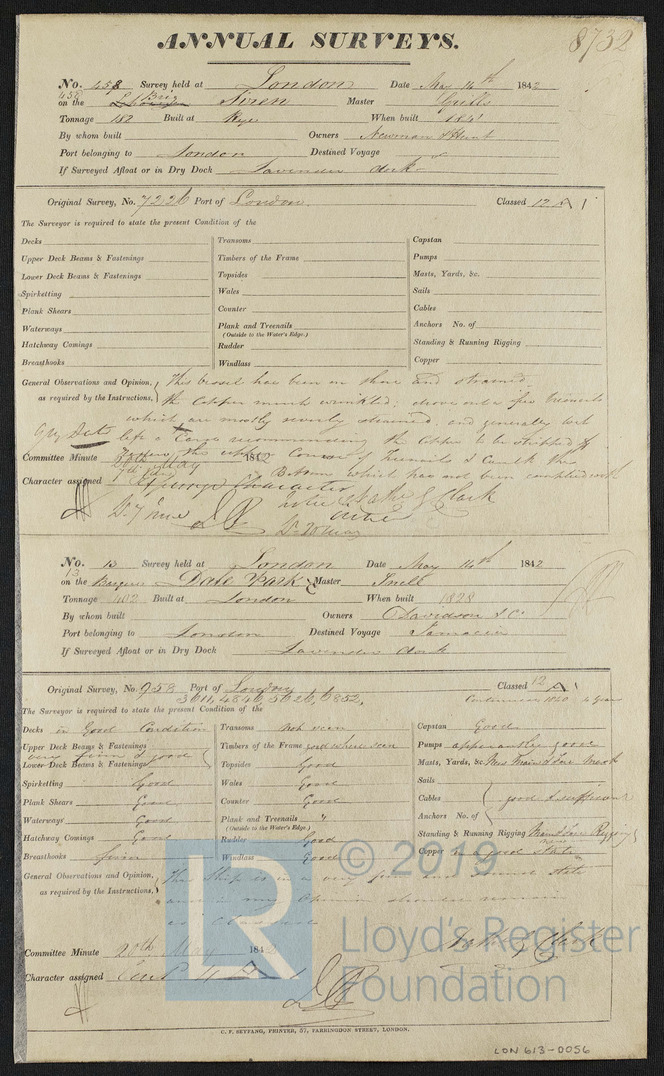 ANNUAL SURVEYS.
8732
No. 458 Survey held at London Date May 14th 1842
458 on the Brig Siren Master
Tonnage 182 Built at Rye When built 1841
By whom built Owners Newman & Hunt
Port belonging to London Destined Voyage
If Surveyed Afloat or in Dry Dock Lavender dock
Original Survey, No. 7226 Port of London Classed 12 A 1
The Surveyor is required to state the present Condition of the
Decks Transoms Capstan
Upper Deck Beams & Fastenings Timbers of the Frame Pumps
Lower Deck Beams & Fastenings Topsides Masts, Yards, &c.
Spirketting Wales Sails
Plank Shears Counter Cables
Waterways Plank and Treenails Anchors No. of
(Outside to the Water's Edge.)
Hatchway Comings Rudder Standing & Running Rigging
Breasthooks Windlass Copper
General Observations and Opinion, This Vessel has been on shore and strained
as required by the Instructions, the Copper much wrinkled; drove out a few treenails
which are mostly severely strained, and generally
left a recommending the Copper to be stripped &
the upper Courses of Treenails & Caulk the
Committee Minute 1842
which has not been complied with
Character assigned
Clark
No. 13 Survey held at London Date May 14th 1842
13 on the Barque Date Park Master Snell
Tonnage 402 Built at London When built 1828
By whom built Owners Davidson & Co.
Port belonging to London Destined Voyage Jamaica
If Surveyed Afloat or in Dry Dock Lavender dock
Original Survey, No. 958 Port of London Classed 12 A 1
3611, 4846, 5626, 5852, Continued 1840 4 Years
The Surveyor is required to state the present Condition of the
Decks in Good Condition Transoms not seen Capstan Good
Upper Deck Beams & Fastenings Timbers of the Frame good where seen Pumps apparently good
very firm & good
Lower Deck Beams & Fastenings Topsides Good Masts, Yards, &c. New Main & fore Mast
Spirketting Good Wales Good Sails
Plank Shears Good Counter Good Cables good & sufficient
Waterways Good Plank and Treenails " Anchors No. of
(Outside to the Water's Edge.)
Hatchway Comings Good Rudder Good Standing & Running Rigging Main & fore Rigging new
Breasthooks firm Windlass Good Copper in a good State
General Observations and Opinion, This Ship is in a very firm and sound state
as required by the Instructions, and in my Opinion should remain
as Classed
Committee Minute 20th May 1842
Character assigned Cont 4 A 1
Clark
C. F. SEYFANG, PRINTER, 57, FARRINGDON STREET, LONDON.
LR © 2019
Lloyd's Register
Foundation
LON 613-0056